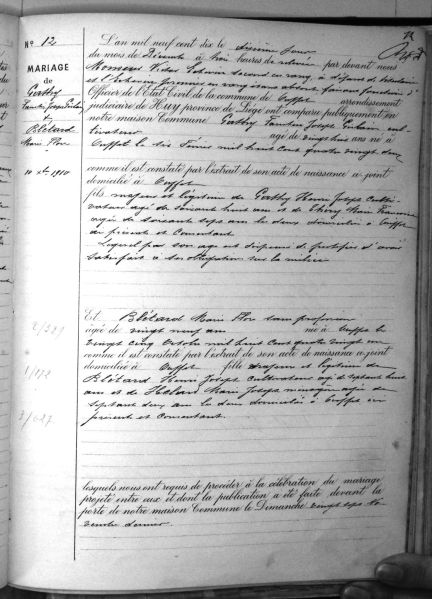 N° 12
MARIAGE
de
Gathy
&
Blétard
Marie Flor
10 Xbre 1910
L'an mil neuf cent dix le dixième jour
du mois de Décembre à trois heures de relevée par devant nous
Officier de l'État Civil de la commune de Ouffet arrondissement
judiciaire de Huy province de Liège ont comparu publiquement en
notre maison Commune Gathy Joseph cul-
tivateur âgé de vingt huit ans né à
Ouffet le six mil huit cent quatre vingt deux
comme il est constaté par l'extrait de son acte de naissance ci-joint
domicilié à Ouffet
fils majeur et légitime de Gathy Henri Joseph culti-
vateur âgé de soixante huit ans et de Marie Françoise
âgée de soixante sept ans les deux domiciliés à Ouffet
ci présents et consentant
Lequel par son âge est dispensé de justifier d'avoir
satisfait à ses obligations sur la milice
Et Blétard Marie Flor sans profession
âgée de vingt neuf ans née à Ouffet le
vingt cinq Octobre mil huit cent quatre vingt un
comme il est constaté par l'extrait de son acte de naissance ci-joint
domiciliée à Ouffet fille majeure et légitime de
Blétard Henri Joseph cultivateur âgé de septante huit
ans et de Marie Joseph ménagère âgée de
septante deux ans les deux domiciliés à Ouffet ci
présents et consentant
lesquels nous ont requis de procéder à la célébration du mariage
projeté entre eux et dont la publication a été faite devant la
porte de notre maison Commune le Dimanche vingt sept No-
vembre dernier